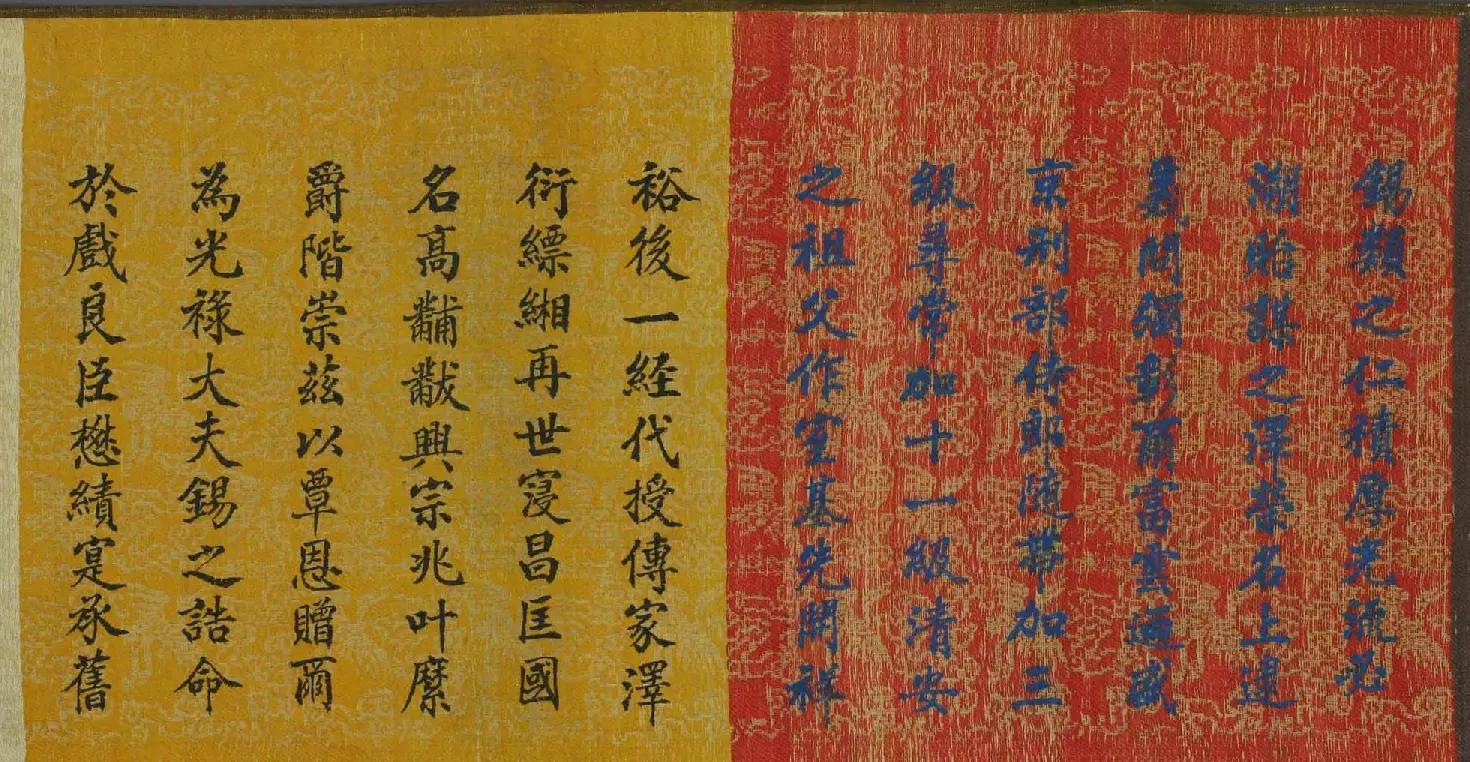 錫類之仁積厚光流必
溯貽謀之澤榮名上逮
義問彌彰爾富雲通盛
京刑部侍郎随帶加三
級尋常加十一級清安
之祖父作室基先開祥
裕後一経代授傳家澤
衍縹緗再世寖昌匡國
名高黼黻興宗兆叶縻
爵階崇茲以覃恩贈爾
為光祿大夫錫之誥命
於戲良臣懋績寔承舊